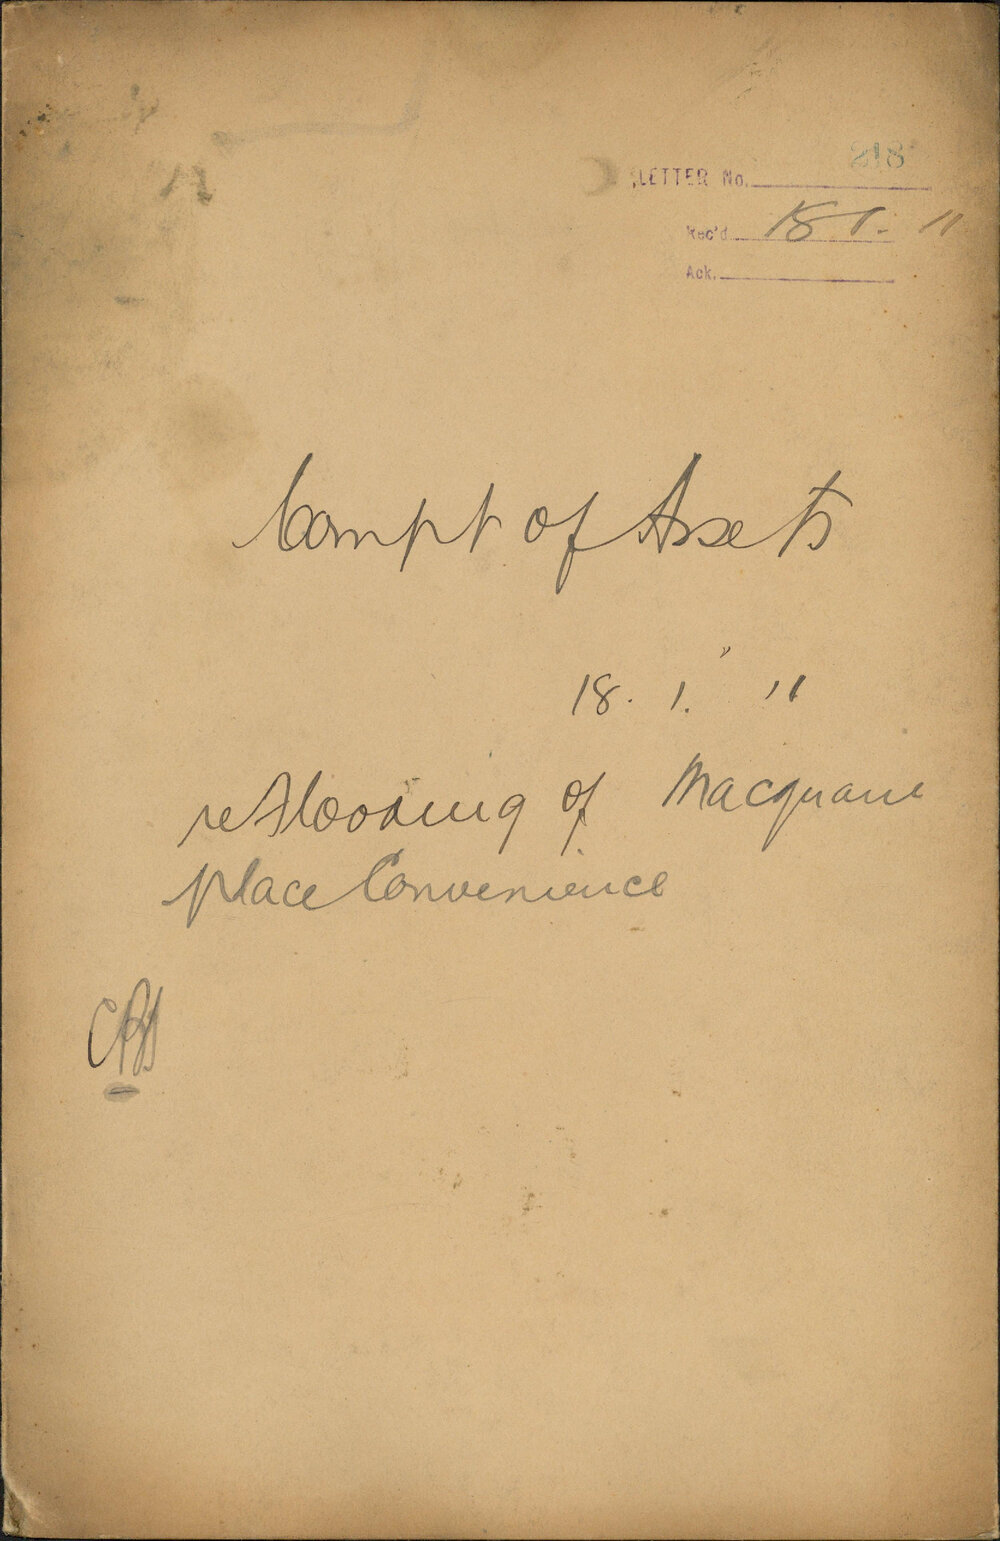 LETTER No. 218
Rec'd 18 1. 11
Ack.
Compt of Assets
18. 1. 11
re Flooding of Macquarie
place Convenience